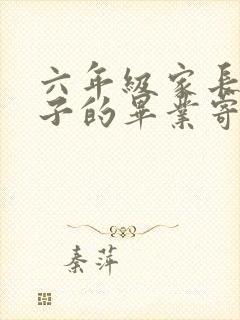 六年級家長
子的畢業寄
秦萍